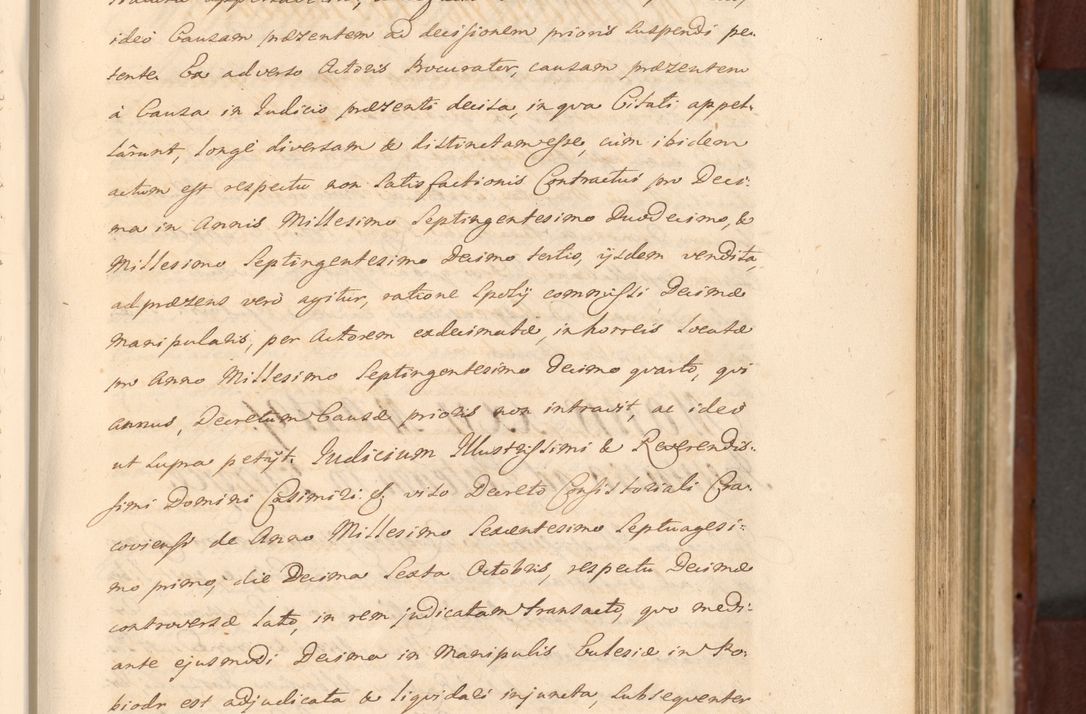 ideò Causam præzentem ad decisionem prioris suspendi pe-
tente. Ex adverso Actoris Procurator, causam præzentem
à Causa in Iudicio præzenti decisa, in qva Citati appel-
lârunt, longè diversam & distinctam esse, cùm ibidem
actum est respectu non satisfactionis Contractus pro Deci-
ma in Annis Millesimo Septingentesimo Duodecimo, &
Millesimo Septingentesimo Decimo tertio, ijsdem vendita,
ad præzens verò agitur, ratione spolij commissi Decimæ
Manipularis, per Actorem exdecimatæ, in horreis locatæ
pro Anno Millesimo Septingentesimo Decimo quarto, qui
annus, Decretum Causæ prioris non intravit, ac ideò
ut supra petijt. Iudicium Illustrissimi & Reverendis-
simi Domini Casimiri &c viso Decreto Consistoriali Cra-
coviensi de Anno Millesimo Sexcentesimo Septuagesi-
mo primo, die Decima Sexta Octobris, respectu Decimæ
controversæ lato, in rem judicatam transacto, quo medi-
ante ejusmodi Decima in Manipulis Eclesiæ in Ro-
biodr est adjudicata & liqvidari injuncta, subseqventer